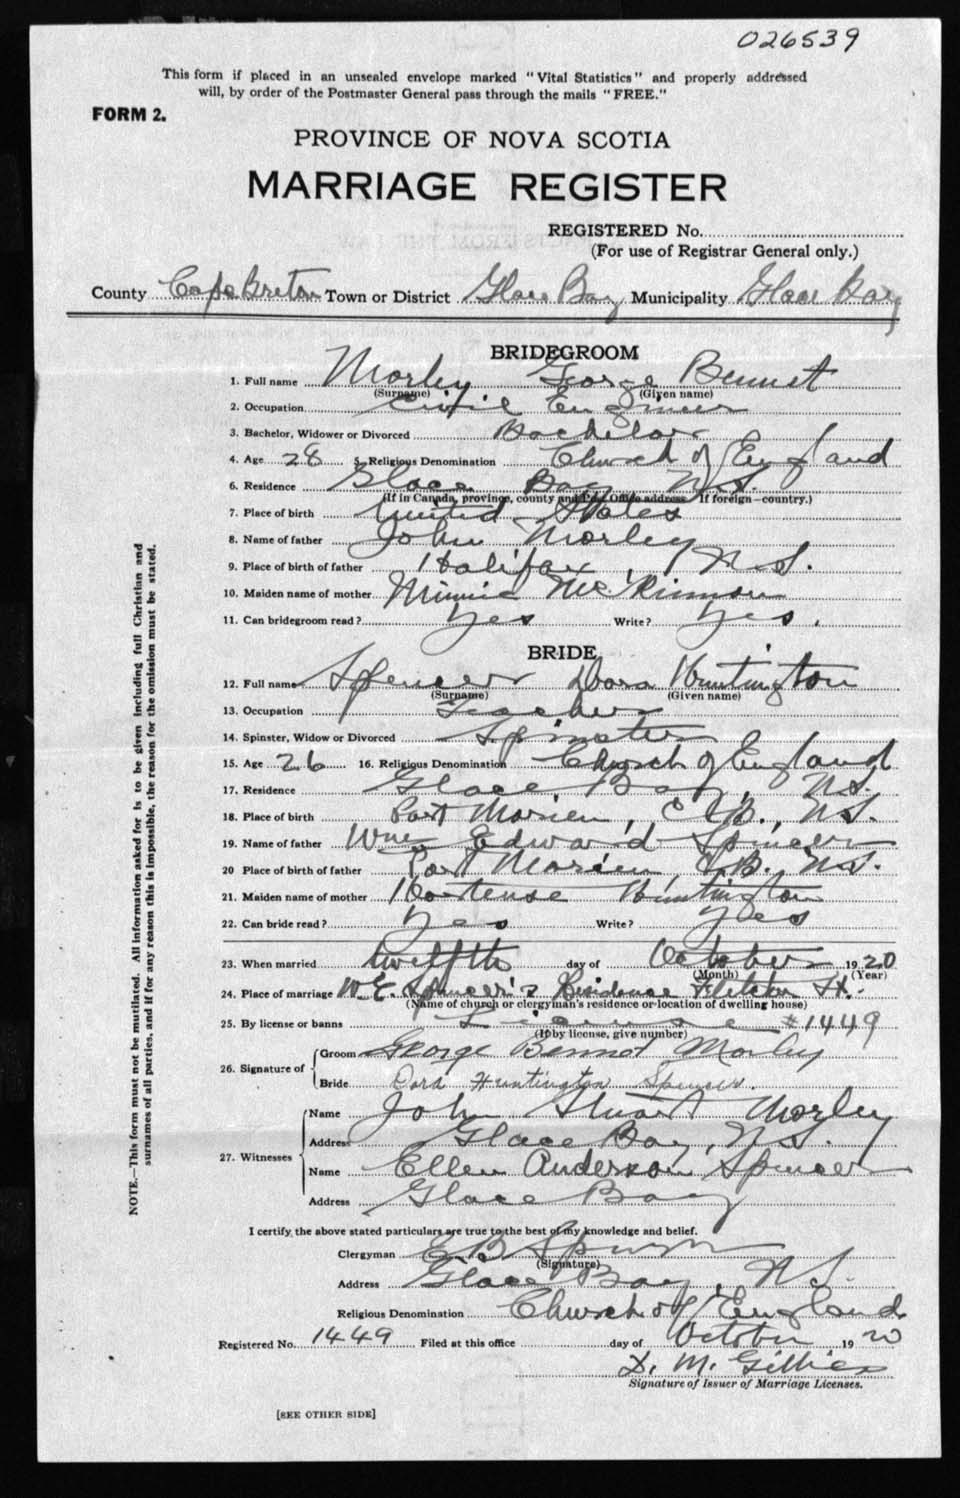 026539
This form if placed in an unsealed envelope marked "Vital Statistics" and properly addressed
will, by order of the Postmaster General pass through the mails "FREE."
FORM 2.
PROVINCE OF NOVA SCOTIA
MARRIAGE REGISTER
REGISTERED No.
(For use of Registrar General only.)
County Cape Breton Town or District Glace Bay Municipality Glace Bay
BRIDEGROOM
1. Full name Morley George Bennet
(Surname) (Given name)
2. Occupation Civil Engineer
3. Bachelor, Widower or Divorced Bachelor
4. Age 28 5. Religious Denomination Church of England
6. Residence Glace Bay N.S.
(If in Canada, province, county and Post Office address. If foreign—country.)
7. Place of birth United States
8. Name of father John Morley
9. Place of birth of father Halifax, N.S.
10. Maiden name of mother Minnie McKinnon
11. Can bridegroom read? Yes Write? Yes.
BRIDE
12. Full name Spencer Dora Huntington
(Surname) (Given name)
13. Occupation Teacher
14. Spinster, Widow or Divorced Spinster
15. Age 26 16. Religious Denomination Church of England
17. Residence Glace Bay, N.S.
18. Place of birth Port Morien, C.B., N.S.
19. Name of father Wm Edward Spencer
20 Place of birth of father Port Morien, C.B., N.S.
21. Maiden name of mother Hortense Huntington
22. Can bride read? Yes Write? Yes
23. When married twelfth day of October 1920
(Month) (Year)
24. Place of marriage W.E. Spencer's Residence St.
(Name of church or clergyman's residence or location of dwelling house)
25. By license or banns License #1449
(If by license, give number)
26. Signature of Groom George Bennet Morley
Bride Dora Huntington Spencer.
27. Witnesses Name John Stuart Morley
Address Glace Bay, N.S.
Name Ellen Anderson Spencer
Address Glace Bay
I certify the above stated particulars are true to the best of my knowledge and belief.
Clergyman E. B.
(Signature)
Address Glace Bay, N.S.
Religious Denomination Church of England
Registered No. 1449 Filed at this office day of October 1920
D. M. Gillies
Signature of Issuer of Marriage Licenses.
[SEE OTHER SIDE]
NOTE.—This form must not be mutilated. All information asked for is to be given including full Christian and
surnames of all parties, and if for any reason this is impossible, the reason for the omission must be stated.